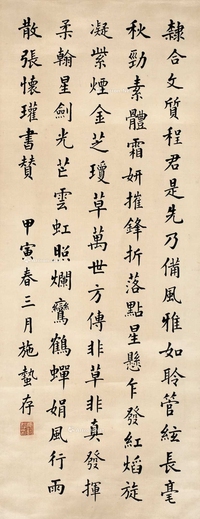 隸合文質程君是先乃備風雅如聆管絃長毫
秋勁素體霜妍摧鋒折落點星懸乍發紅焰旋
凝紫煙金芝瓊草萬世方傳非草非真發揮
柔翰星劍光芒雲虹照爛鸞鶴蟬娟風行雨
散張懷瓘書贊 甲寅春三月施蟄存